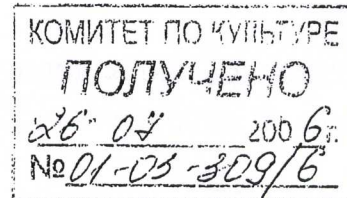 КОМИТЕТ ПО КУЛЬТУРЕ
ПОЛУЧЕНО
26 07 2006 г.
№ 01-03-309/6